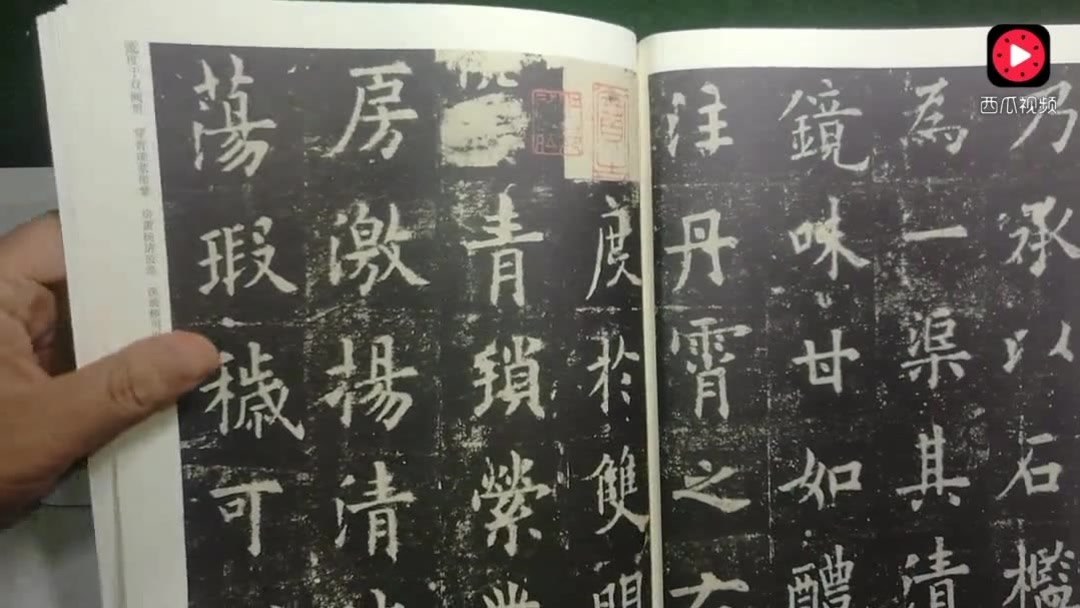 乃承以石檻
為一渠其清
鏡味甘如醴
注丹霄之右
度於雙
青瑣縈
房激揚清
蕩瑕穢可
西瓜视频